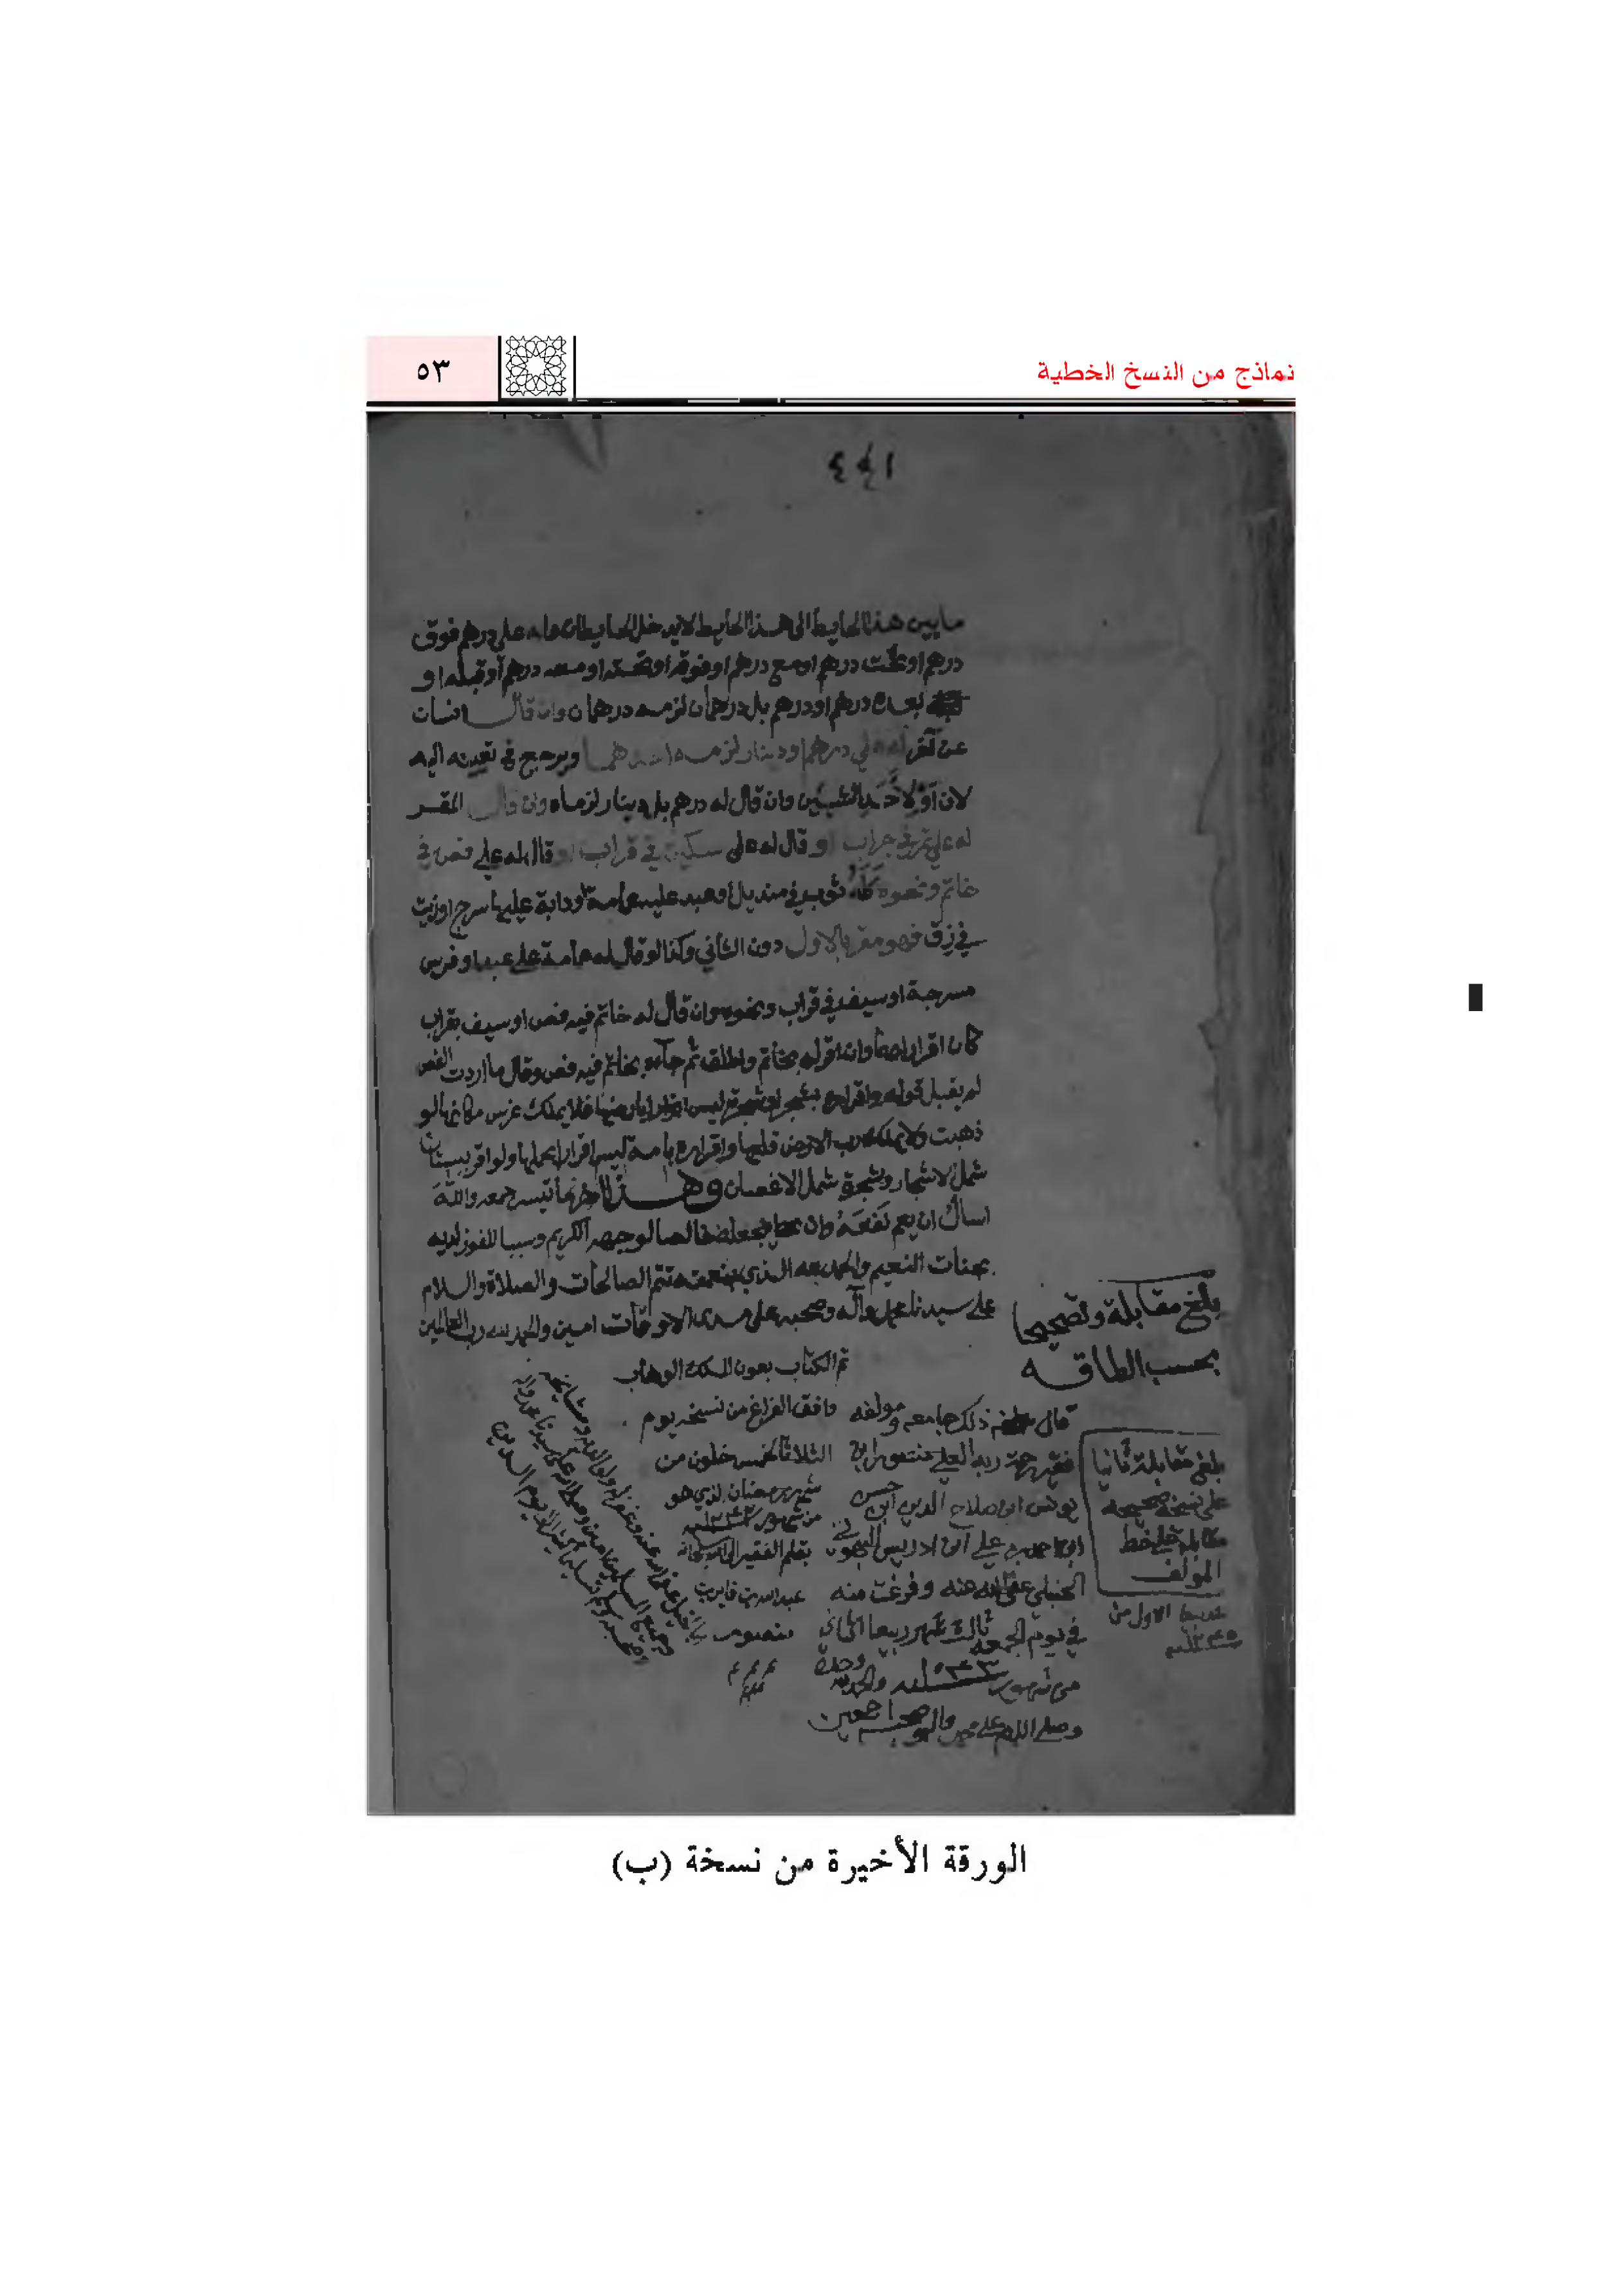 نماذج من النسخ الخطية
٥٣
١٤٤
ما بين هذا الحايط الى هذا الحايط لا يدخل الحايطان على درهم فوق
درهم او تحت درهم او مع درهم او فوقه او تحته او معه درهم او قبله او
بعده درهم او درهم بل درهمان لزمه درهمان وان قال انسان
عن آخر له على درهم او دينار لزمه احدهما ويرجع في تعيينه اليه
لان او لاحد الشيئين وان قال له درهم بل دينار لزماه وان قال المقر
له علي تمر في جراب او قال له علي سكين في قراب او قال له علي فص في
خاتم ونحوه كله ثوب في منديل او عبد عليه عمامة او دابة عليها سرج او زيت
في زق فهو مقر بالاول دون الثاني وكذا لو قال له عمامة على عبد او فرس
مسرجة او سيف في قراب ونحوه وان قال له خاتم فيه فص او سيف بقراب
كان اقرارا بهما وان اقر له بخاتم واطلق ثم جاءه بخاتم فيه فص وقال ما اردت الفص
لم يقبل قوله واقراره بشجر او شجرة ليس اقرارا بارضها فلا يملك غرس مكانها لو
ذهبت ولا يملك رب الارض قلعها واقراره بامة ليس اقرارا بحملها ولو اقر ببستان
شمل الاشجار وبشجرة شمل الاغصان وهذا اخر ما تيسر جمعه والله
اسأل ان يعم نفعه وان يجعله خالصا لوجهه الكريم وسببا للفوز لديه
بجنات النعيم والحمد لله الذي بنعمته تتم الصالحات والصلاة والسلام
على سيدنا محمد وآله وصحبه على مدى الاوقات امين والحمد لله رب العالمين
تم الكتاب بعون الملك الوهاب
بلغ مقابلة وتصحيحا
بحسب الطاقه
قال ذلك جامعه ومولفه
فقير رحمة ربه العلي منصور ابن
يونس ابن صلاح الدين ابن حسن
ابن احمد بن علي ابن ادريس البهوتي
الحنبلي عفى الله عنه وفرغت منه
في يوم الجمعه ثالث شهر ربيع الثاني
من شهور سنة ١٠٤٣ والحمد لله وحده
وصلى الله على محمد واله وصحبه اجمعين
وافق الفراغ من نسخه يوم
الثلاثا لخمس خلون من
شهر رمضان الذي هو
من شهور
بقلم الفقير الى الله
عبد الله بن فايز بن
منصور
بلغ مقابلة ثانيا
على نسخة صحيحه
مقابلة على خط
المؤلف
الاول من
الورقة الأخيرة من نسخة (ب)